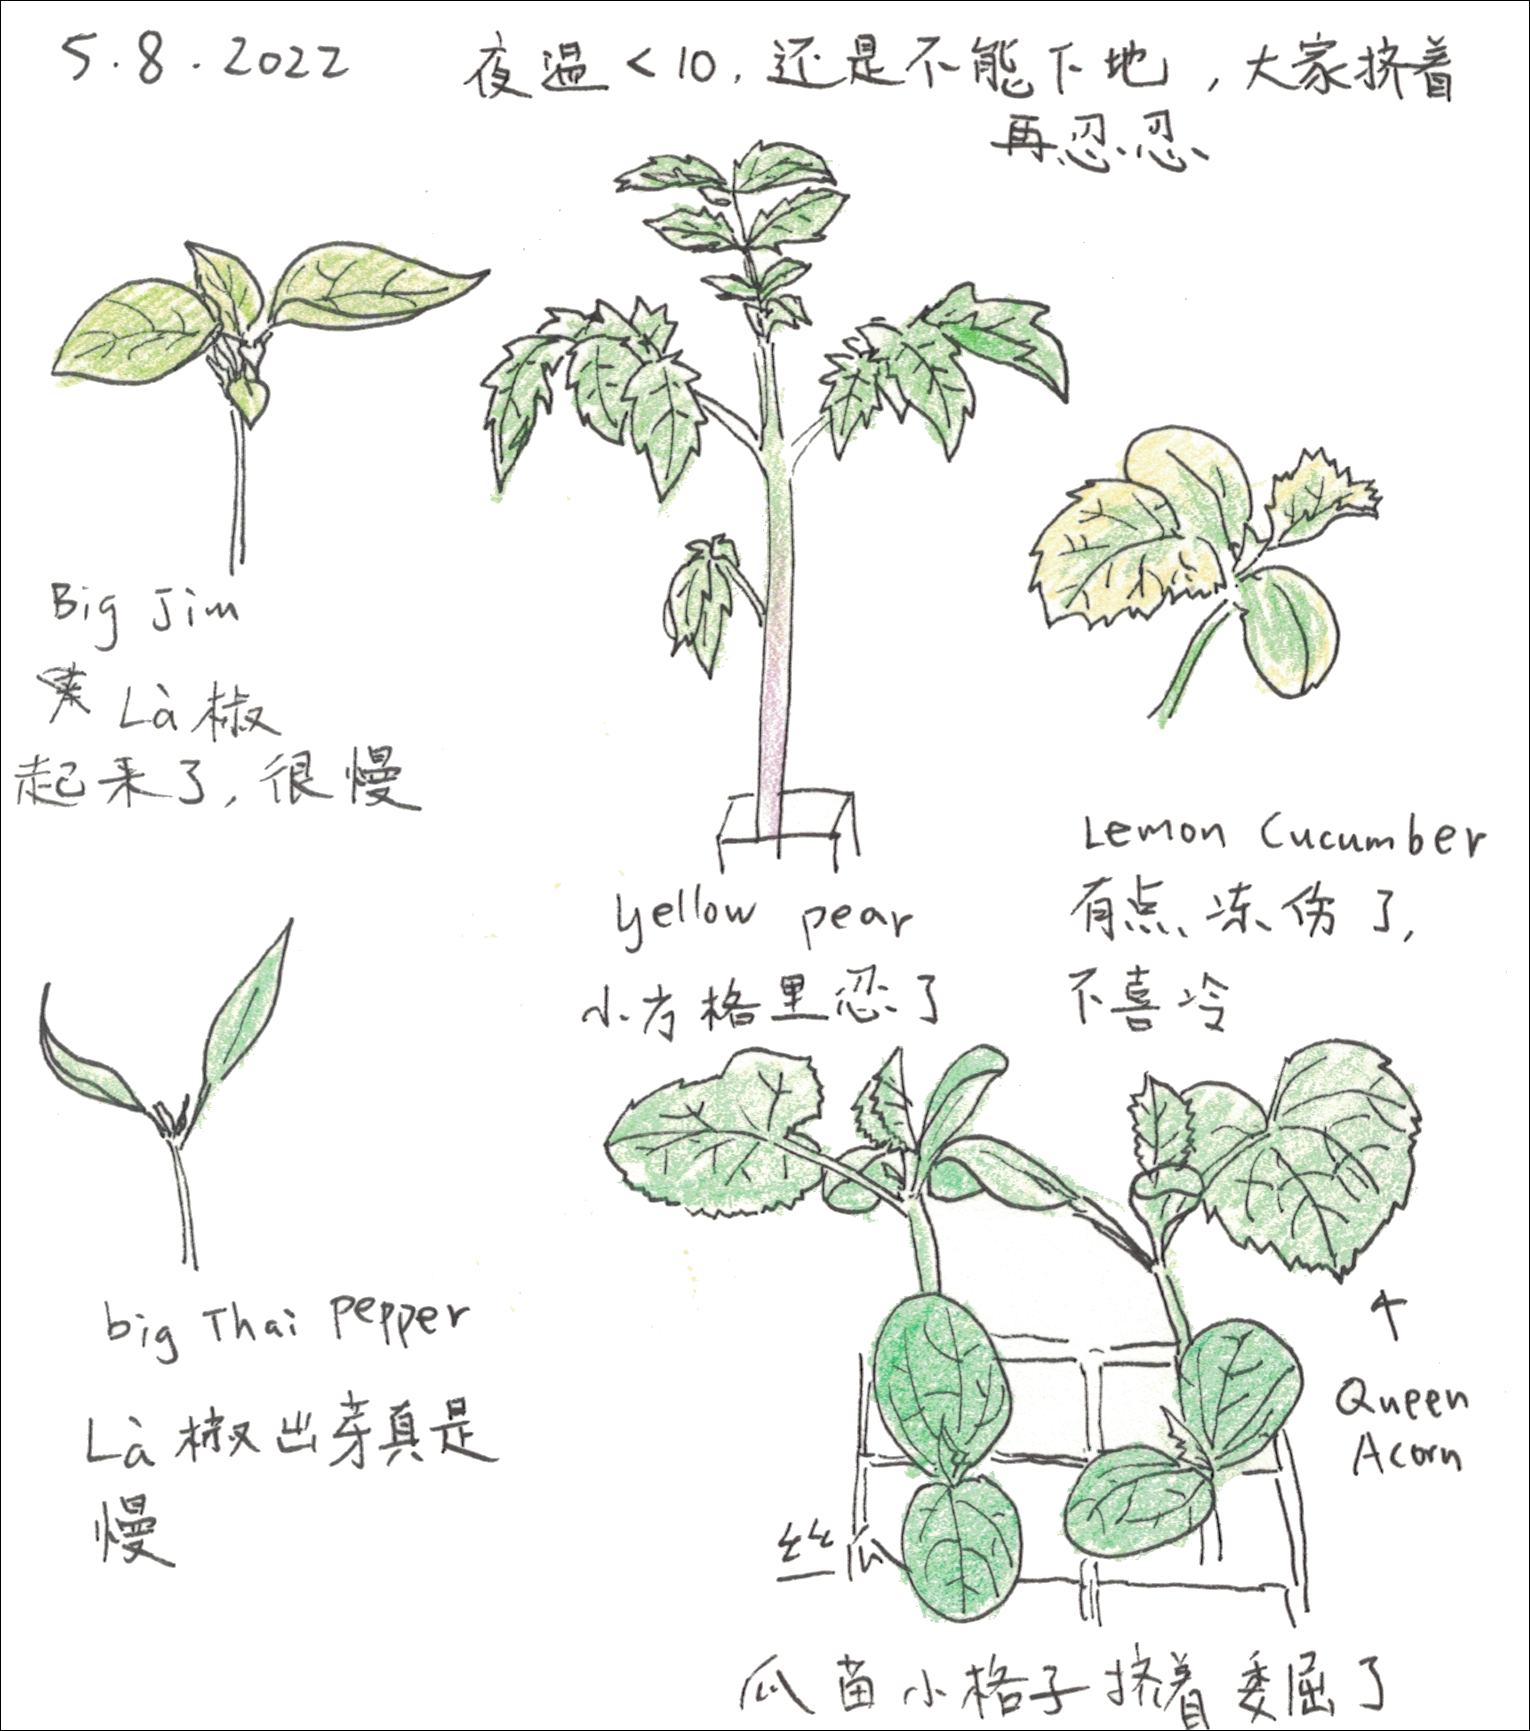 5.8.2022
夜温<10,还是不能下地,大家挤着
再忍忍
Big Jim
Là椒
起来了,很慢
yellow pear
小方格里忍了
Lemon Cucumber
有点冻伤了,
不喜冷
big Thai Pepper
Là椒出芽真是
慢
Queen
Acorn
丝瓜
瓜苗小格子挤着委屈了